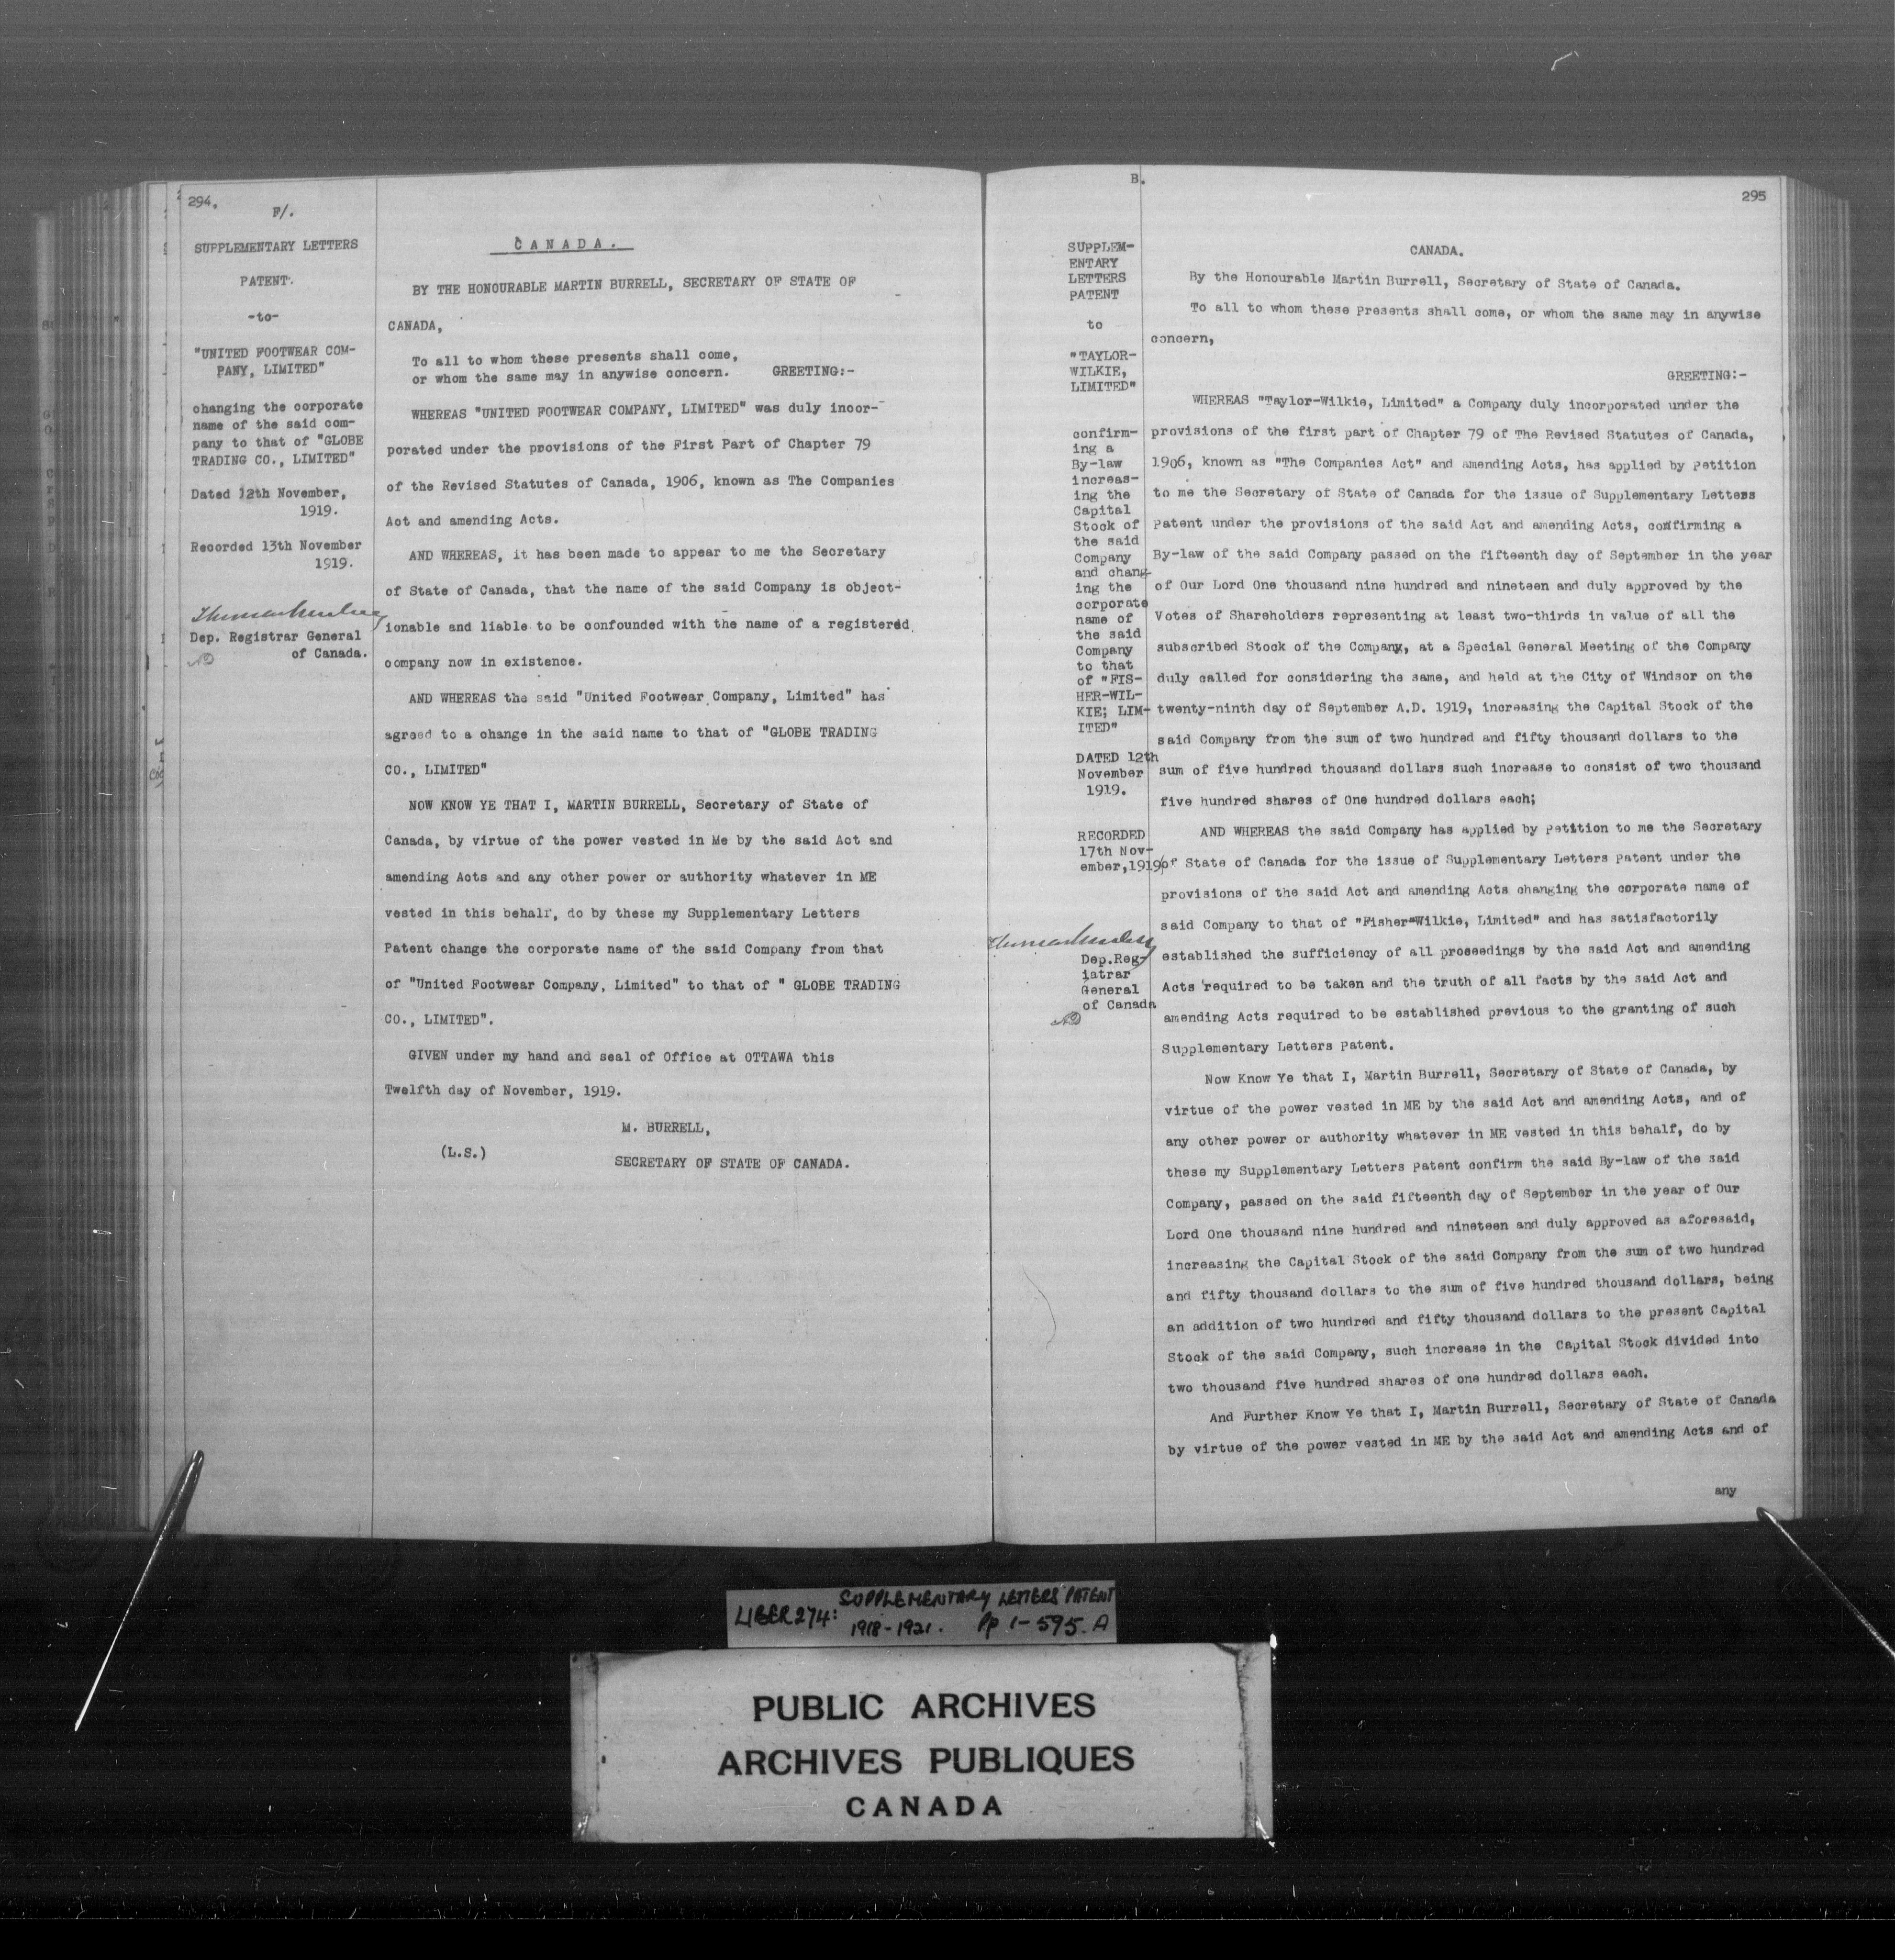 294.
F/.
SUPPLEMENTARY LETTERS
PATENT.
-to-
"UNITED FOOTWEAR COM-
PANY, LIMITED"
changing the corporate
name of the said com-
pany to that of "GLOBE
TRADING CO., LIMITED"
Dated 12th November,
1919.
Recorded 13th November
1919.
Dep. Registrar General
of Canada.
CANADA.
BY THE HONOURABLE MARTIN BURRELL, SECRETARY OF STATE OF
CANADA,
To all to whom these presents shall come,
or whom the same may in anywise concern. GREETING:-
WHEREAS "UNITED FOOTWEAR COMPANY, LIMITED" was duly incor-
porated under the provisions of the First Part of Chapter 79
of the Revised Statutes of Canada, 1906, known as The Companies
Act and amending Acts.
AND WHEREAS, it has been made to appear to me the Secretary
of State of Canada, that the name of the said Company is object-
ionable and liable to be confounded with the name of a registered
company now in existence.
AND WHEREAS the said "United Footwear Company, Limited" has
agreed to a change in the said name to that of "GLOBE TRADING
CO., LIMITED"
NOW KNOW YE THAT I, MARTIN BURRELL, Secretary of State of
Canada, by virtue of the power vested in Me by the said Act and
amending Acts and any other power or authority whatever in ME
vested in this behalf, do by these my Supplementary Letters
Patent change the corporate name of the said Company from that
of "United Footwear Company, Limited" to that of " GLOBE TRADING
CO., LIMITED".
GIVEN under my hand and seal of Office at OTTAWA this
Twelfth day of November, 1919.
M. BURRELL,
(L.S.)
SECRETARY OF STATE OF CANADA.
B.
295
SUPPLEM-
ENTARY
LETTERS
PATENT
to
"TAYLOR-
WILKIE,
LIMITED"
confirm-
ing a
By-law
increas-
ing the
Capital
Stock of
the said
Company
and chang-
ing the
corporate
name of
the said
Company
to that
of "FIS-
HER-WIL-
KIE; LIM-
ITED"
DATED 12th
November
1919.
RECORDED
17th Nov-
ember,1919
Dep.Reg-
istrar
General
of Canada
CANADA.
By the Honourable Martin Burrell, Secretary of State of Canada.
To all to whom these Presents shall come, or whom the same may in anywise
concern,
GREETING:-
WHEREAS "Taylor-Wilkie, Limited" a Company duly incorporated under the
provisions of the first part of Chapter 79 of The Revised Statutes of Canada,
1906, known as "The Companies Act" and amending Acts, has applied by Petition
to me the Secretary of State of Canada for the issue of Supplementary Letters
Patent under the provisions of the said Act and amending Acts, confirming a
By-law of the said Company passed on the fifteenth day of September in the year
of Our Lord One thousand nine hundred and nineteen and duly approved by the
Votes of Shareholders representing at least two-thirds in value of all the
subscribed Stock of the Company, at a Special General Meeting of the Company
duly called for considering the same, and held at the City of Windsor on the
twenty-ninth day of September A.D. 1919, increasing the Capital Stock of the
said Company from the sum of two hundred and fifty thousand dollars to the
sum of five hundred thousand dollars such increase to consist of two thousand
five hundred shares of One hundred dollars each;
AND WHEREAS the said Company has applied by Petition to me the Secretary
of State of Canada for the issue of Supplementary Letters Patent under the
provisions of the said Act and amending Acts changing the corporate name of
said Company to that of "Fisher-Wilkie, Limited" and has satisfactorily
established the sufficiency of all proceedings by the said Act and amending
Acts required to be taken and the truth of all facts by the said Act and
amending Acts required to be established previous to the granting of such
Supplementary Letters Patent.
Now Know Ye that I, Martin Burrell, Secretary of State of Canada, by
virtue of the power vested in ME by the said Act and amending Acts, and of
any other power or authority whatever in ME vested in this behalf, do by
these my Supplementary Letters Patent confirm the said By-law of the said
Company, passed on the said fifteenth day of September in the year of Our
Lord One thousand nine hundred and nineteen and duly approved as aforesaid,
increasing the Capital Stock of the said Company from the sum of two hundred
and fifty thousand dollars to the sum of five hundred thousand dollars, being
an addition of two hundred and fifty thousand dollars to the present Capital
Stock of the said Company, such increase in the Capital Stock divided into
two thousand five hundred shares of one hundred dollars each.
And Further Know Ye that I, Martin Burrell, Secretary of State of Canada
by virtue of the power vested in ME by the said Act and amending Acts and of
any
LIBER 274: SUPPLEMENTARY LETTERS PATENT
1918-1921. Pp 1-595.A
PUBLIC ARCHIVES
ARCHIVES PUBLIQUES
CANADA